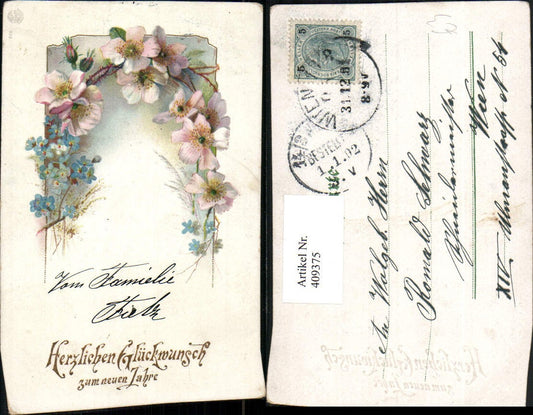 Vom Familie
Fietz
Herzlichen Glückwunsch
zum neuen Jahre
5
5
WIEN
31.12.
8-9V
BESTELLT
1.1.02
V
Artikel Nr.
409375
An Wolgeb. Herrn
Romald Schwarz
Wien
XIV Ulmannstrasse N 54